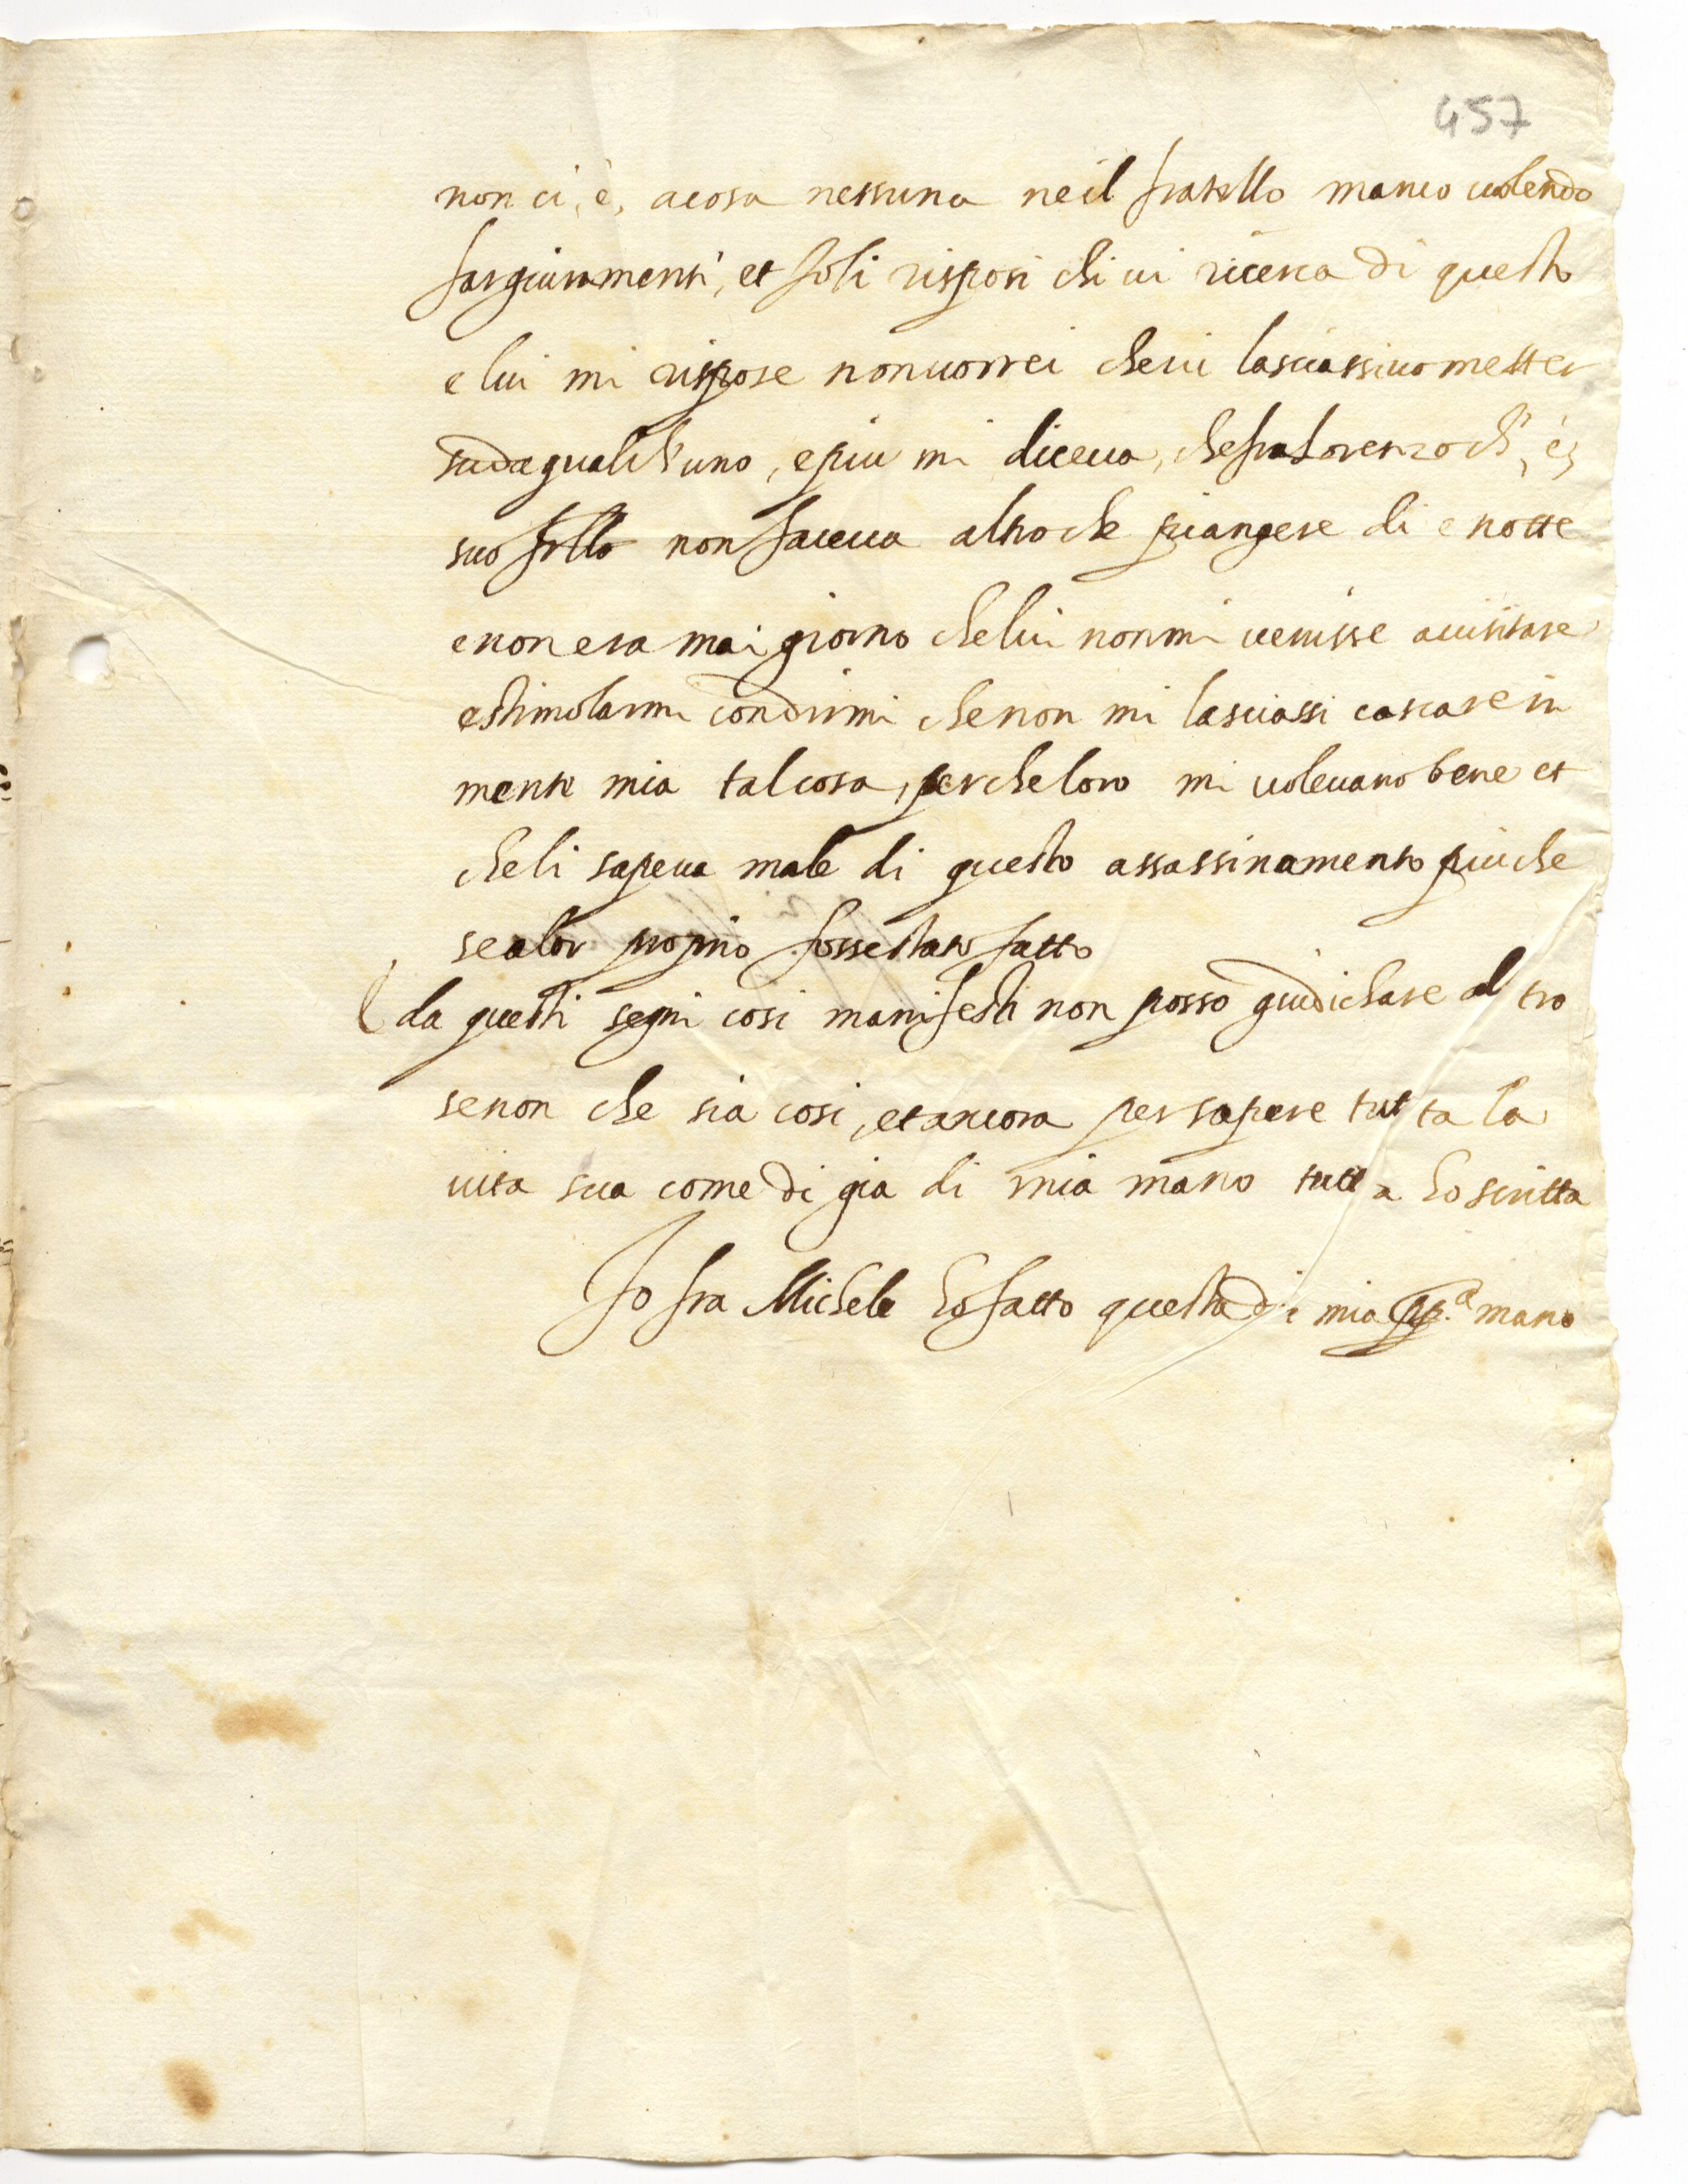 457
non ci, è, acosa nessuna neil fratello manco uolendo
far giuramenti, et io li risposi chi ui ricerca di questo
e lui mi rispose nonuorrei cheui lasciassiuo metter
sudaqualch'uno, epiu mi diceua, chefraLorenzo ch', è,
suo frllo non faceua altroche piangere di e notte
enonera mai giorno chelui nonmi uenisse auisitare
estimolarmi condirmi chenon mi lasciassi cascarein
mente mia talcosa, percheloro mi uoleuano bene et
cheli sapeua male di questo assassinamento piuche
sealor proprio fossestato fatto
da questi segni cosi manifesti non posso giudichare al tro
senon che sia cosi, etancora persapere tut ta la
uita sua come di gia di mia mano tutt a ho scritta
Io fra Michele ho fatto questa di mia pp.a mano